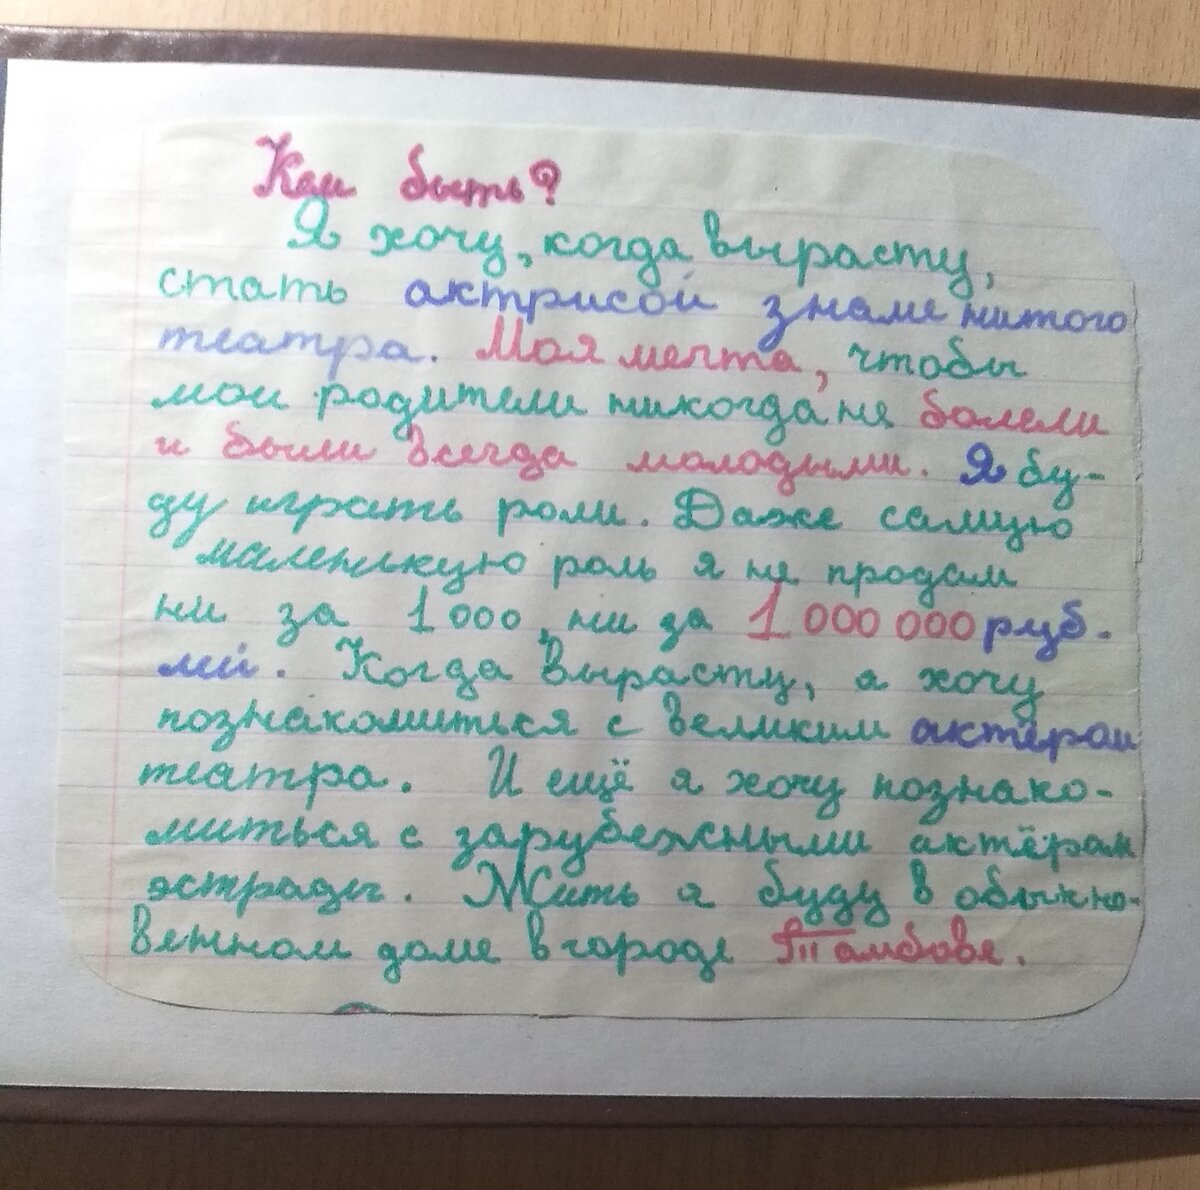 Как быть?
Я хочу, когда вырасту,
стать актрисой знаменитого
театра. Моя мечта, чтобы
мои родители никогда не болели
и были всегда молодыми. Я бу-
ду играть роли. Даже самую
маленькую роль я не продам
ни за 1000, ни за 1 000 000 руб-
лей. Когда вырасту, я хочу
познакомиться с великим актёром
театра. И ещё я хочу познако-
миться с зарубежными актёрам
эстрады. Жить я буду в обыкно-
венном доме в городе Тамбове.